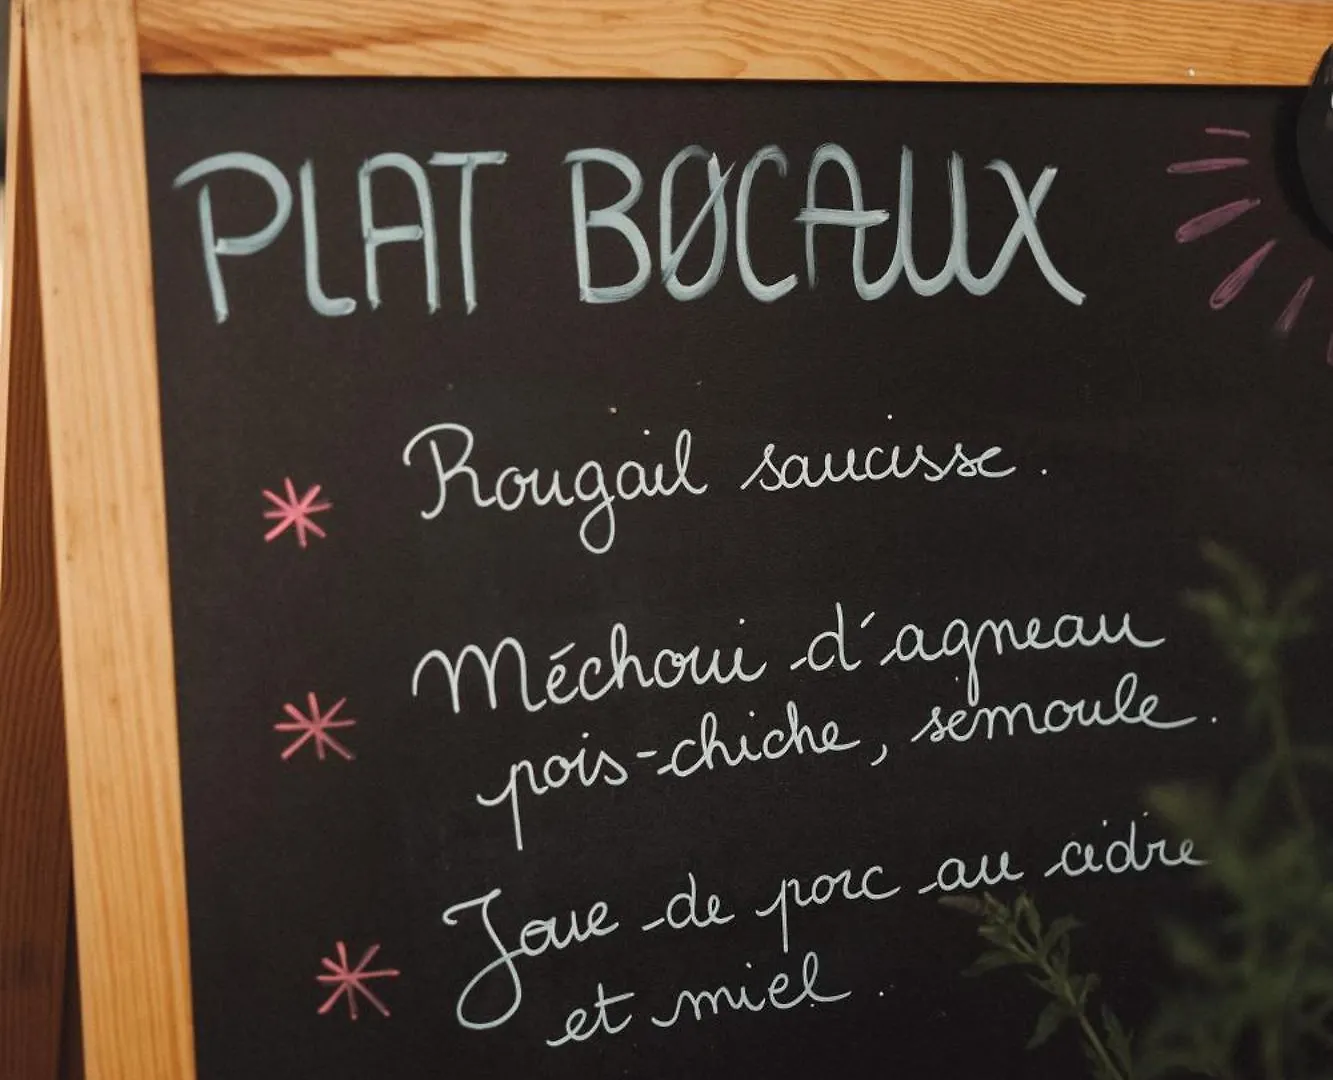 PLAT BØCAUX
Rougail saucisse.
Méchoui d'agneau
pois-chiche, semoule.
Joue de porc au cidre
et miel.